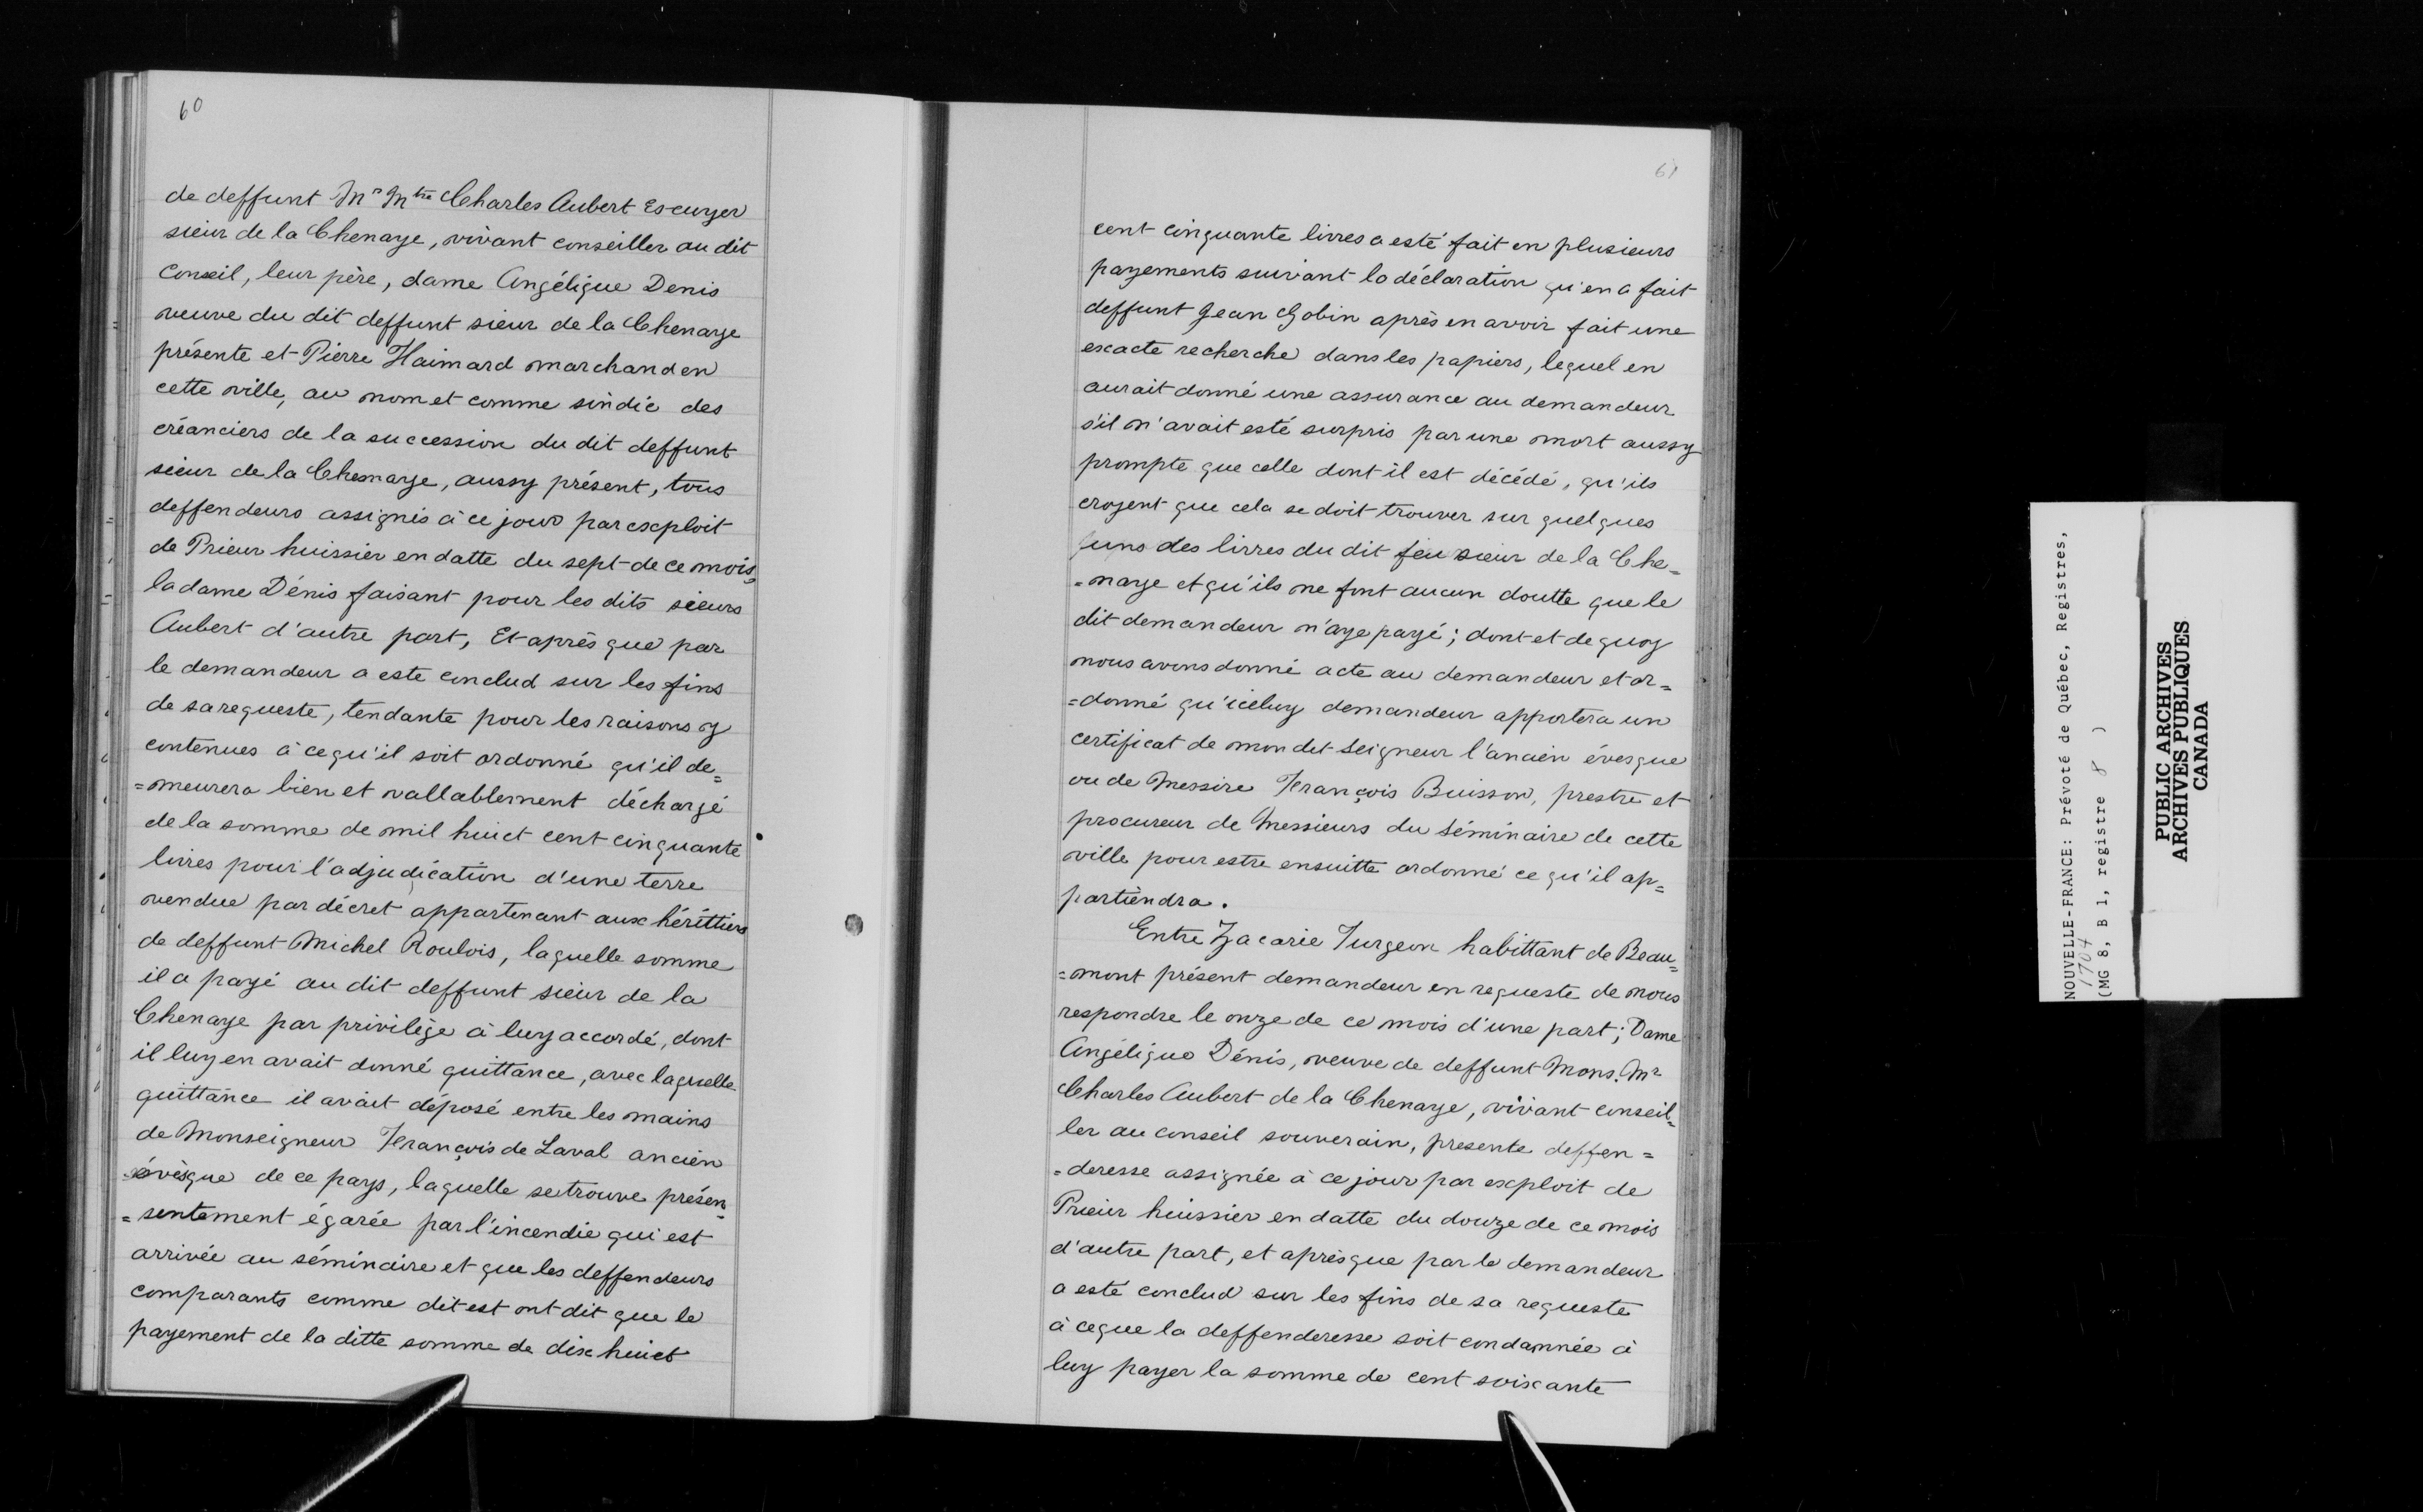 60
de deffunt Mr Mtre Charles Aubert Escuyer
sieur de la Chenaye, vivant conseiller au dit
Conseil, leur père, dame Angélique Denis
veuve du dit deffunt sieur de la Chenaye
présente et Pierre Haimard marchand en
cette ville, au nom et comme sindic des
créanciers de la succession du dit deffunt
sieur de la Chesnaye, aussy présent, tous
deffendeurs assignés à ce jour par exploit
de Prieur huissier en datte du sept de ce mois,
la dame Dénis faisant pour les dits sieurs
Aubert d'autre part, Et après que par
le demandeur a este conclud sur les fins
de sa requeste, tendante pour les raisons y
contenues à ce qu'il soit ordonné qu'il de=
=meurera bien et vallablement déchargé
de la somme de mil huict cent cinquante
livres pour l'adjudication d'une terre
vendue par décret appartenant aux hérittiers
de deffunt Michel Roulois, laquelle somme
il a payé au dit deffunt sieur de la
Chenaye par privilège à luy accordé, dont
il luy en avait donné quittance, avec laquelle
quittance il avait déposé entre les mains
de Monseigneur François de Laval ancien
évêsque de ce pays, laquelle se trouve présen=
=sentement égarée par l'incendie qui est
arrivée au séminaire et que les deffendeurs
comparants comme dit est ont dit que le
payement de la ditte somme de dix huict
61
cent cinquante livres a esté fait en plusieurs
payements suivant la déclaration qu'en a fait
deffunt Jean Gobin après en avoir fait une
exacte recherche dans les papiers, lequel en
aurait donné une assurance au demandeur
s'il n'avait esté surpris par une mort aussy
prompte que celle dont il est décédé, qu'ils
croyent que cela se doit trouver sur quelques
uns des livres du dit feu sieur de la Che=
=naye et qu'ils ne font aucun doutte que le
dit demandeur n'aye payé; dont et de quoy
nous avons donné acte au demandeur et or=
=donné qu'iceluy demandeur apportera un
certificat de mon dit Seigneur l'ancien évesque
ou de Messire François Buisson, prestre et
procureur de Messieurs du Séminaire de cette
ville pour estre ensuitte ordonné ce qu'il ap=
partiendra.
Entre Zacarie Turgeon habittant de Beau=
=mont présent demandeur en requeste de nous
respondre le onze de ce mois d'une part; Dame
Angélique Dénis, veuve de deffunt Mons. Mr
Charles Aubert de la Chenaye, vivant conseil=
ler au conseil souverain, presente deffen=
=deresse assignée à ce jour par exploit de
Prieur huissier en datte du douze de ce mois
d'autre part, et après que par le demandeur
a esté conclud sur les fins de sa requeste
à ce que la deffenderesse soit condamnée à
luy payer la somme de cent soixante
NOUVELLE-FRANCE: Prévoté de Québec, Registres,
1704
(MG 8, B 1, registre 8 )
PUBLIC ARCHIVES
ARCHIVES PUBLIQUES
CANADA